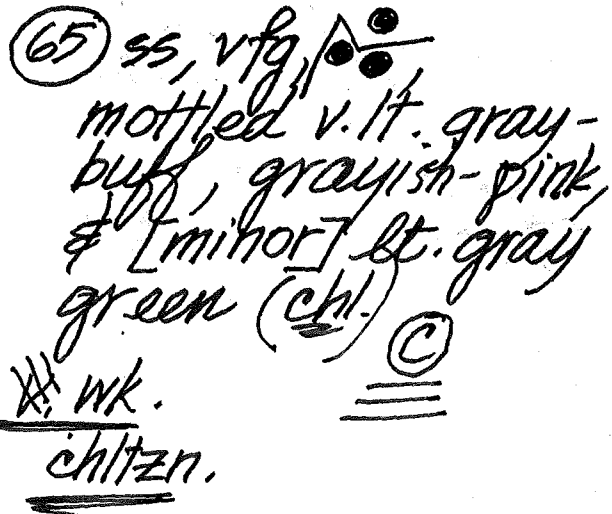 65 ss, vfg,
mottled v. lt. gray-
buff, grayish-pink,
& [minor] lt. gray
green (chl.)
C
wk.
chltzn.